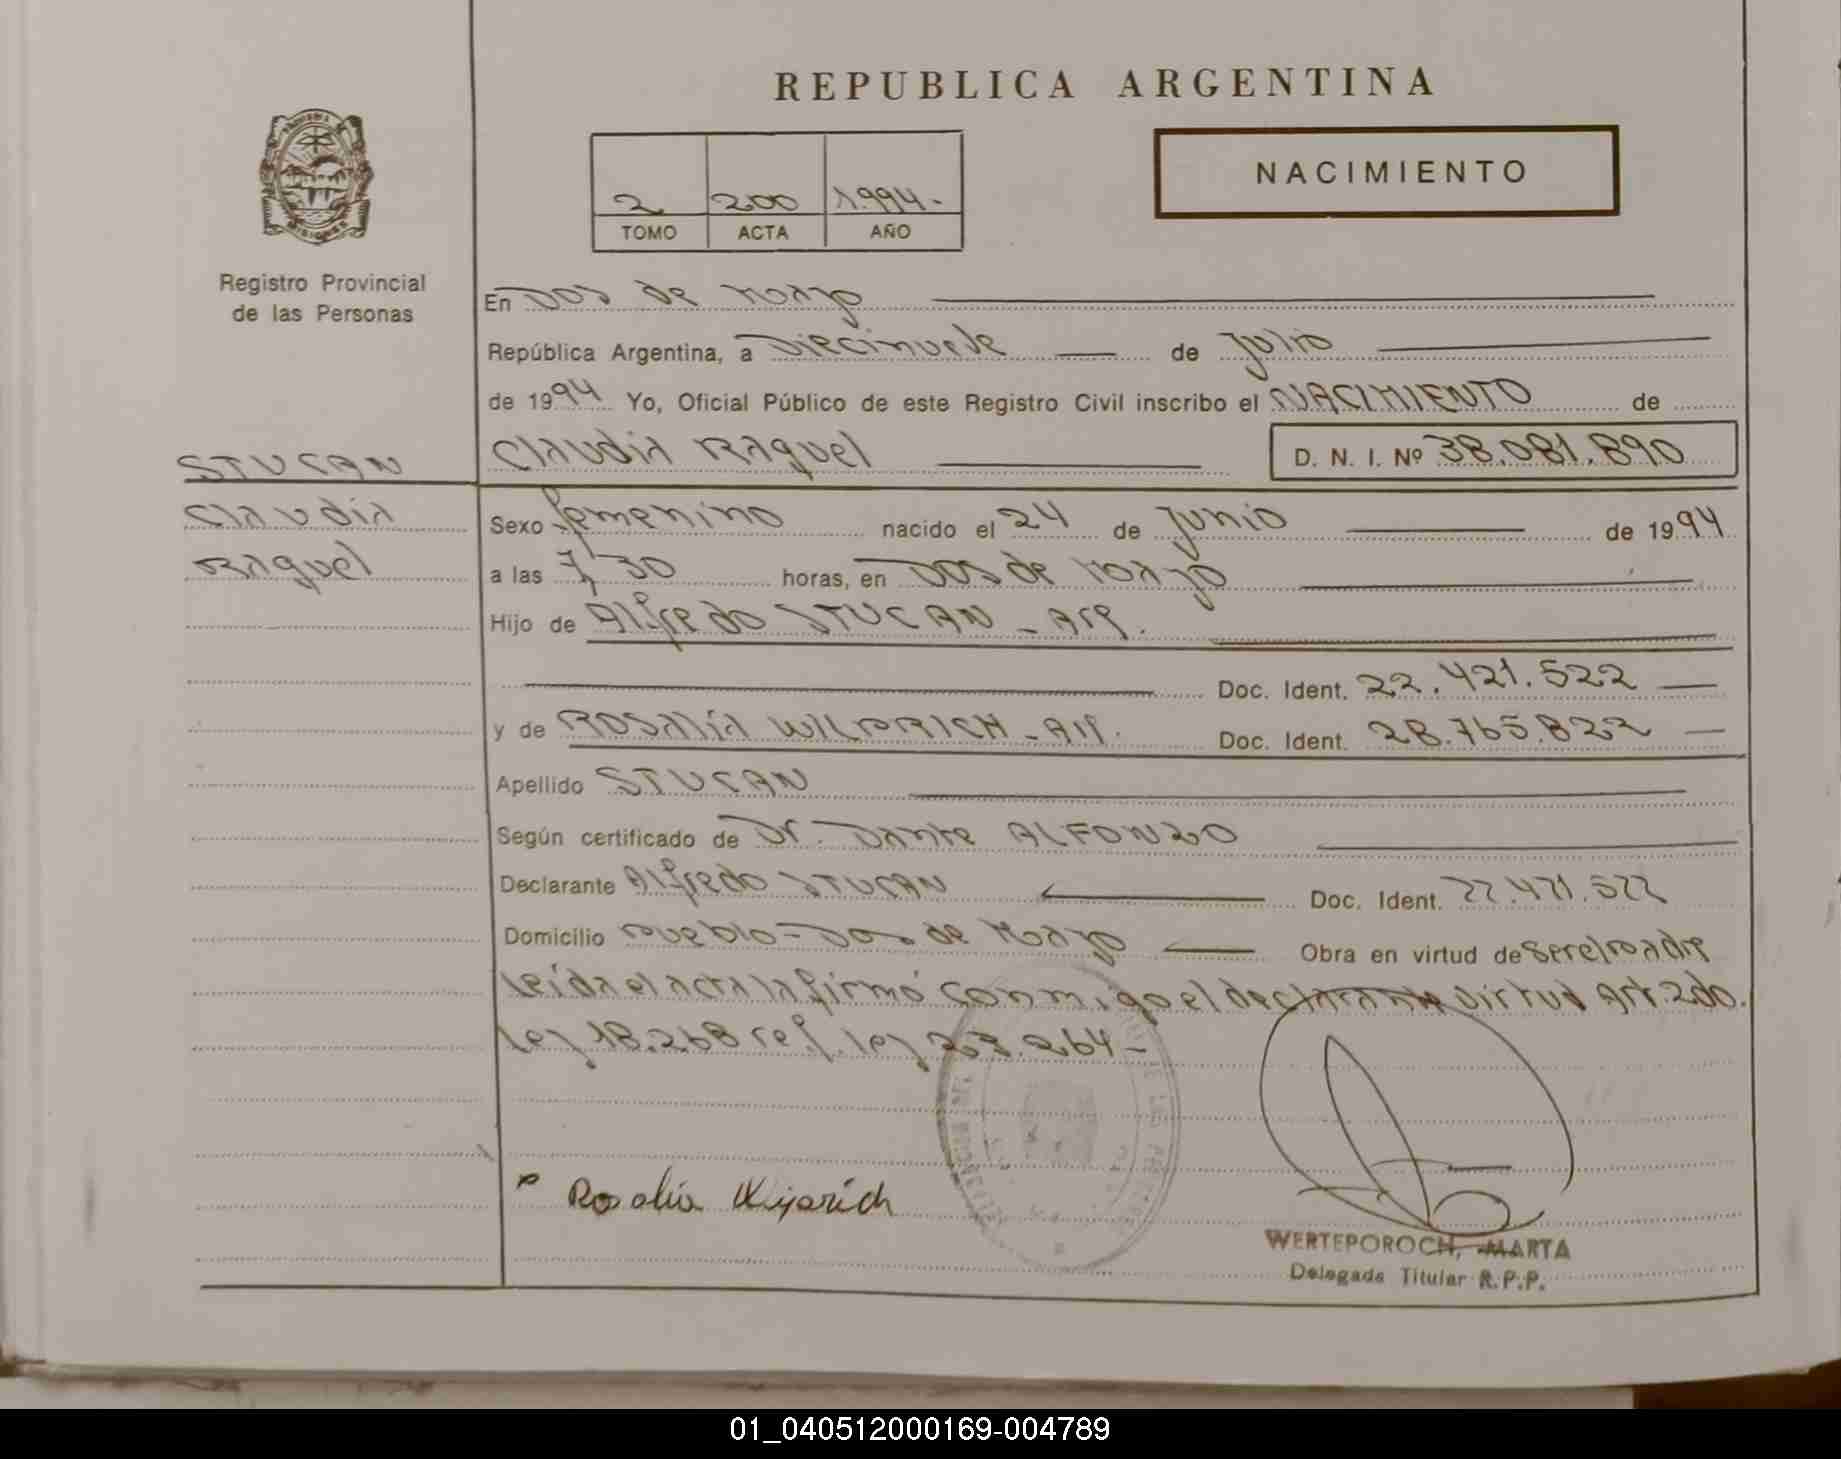 REPUBLICA ARGENTINA
NACIMIENTO
2 200 1.994.
TOMO ACTA AÑO
Registro Provincial
de las Personas
En Dos de Mayo
República Argentina, a Diecinueve de Julio
de 1994 Yo, Oficial Público de este Registro Civil inscribo el NACIMIENTO de
Claudia Raquel D. N. I. Nº 38.081.890
STUCAN
Claudia
Raquel
Sexo femenino nacido el 24 de Junio de 1994
a las 7,30 horas, en Dos de Mayo
Hijo de Alfredo STUCAN - Arg.
Doc. Ident. 22.421.522
y de Rosalía - Arg. Doc. Ident. 28.765.822
Apellido STUCAN
Según certificado de Dr. Dante ALFONZO
Declarante Alfredo STUCAN Doc. Ident. 22.421.522
Domicilio Pueblo - Dos de Mayo Obra en virtud de ser el padre
Leida el acta la firmó conmigo el declarante virtud Art. 2do.
Ley 18.268 ref. ley 23.264 -
Rosalia
WERTEPOROCH, MARTA
Delegada Titular R.P.P.
01_040512000169-004789